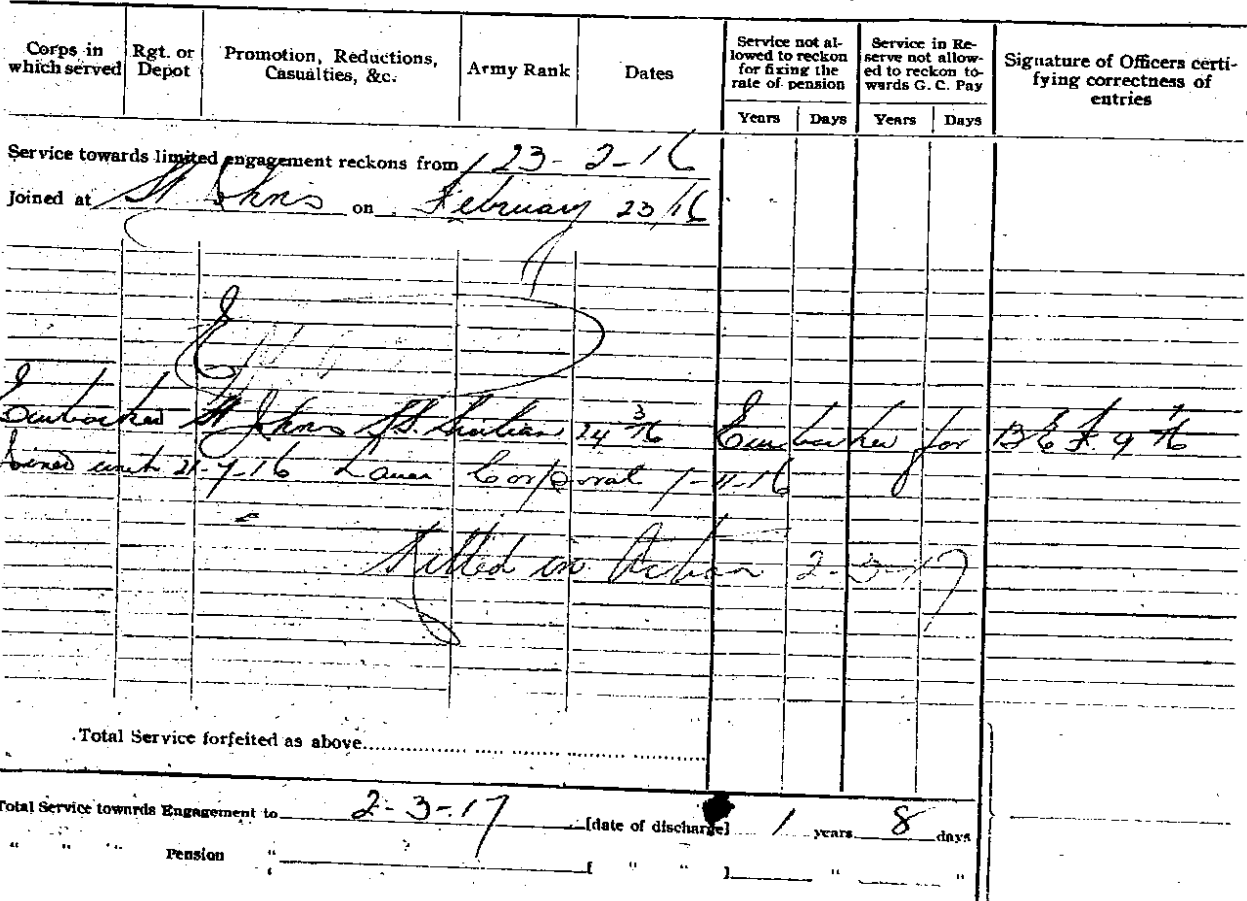 Corps in which served
Rgt. or Depot
Promotion, Reductions, Casualties, &c.
Army Rank
Dates
Service not al-
lowed to reckon
for fixing the
rate of pension
Service in Re-
serve not allow-
ed to reckon to-
wards G. C. Pay
Signature of Officers certi-
fying correctness of
entries
Years Days Years Days
Service towards limited engagement reckons from 23-2-16
Joined at St Johns on February 23/16
Embarked St Johns S.S. 24 3/16 Embarked for B.E.F. 9 7/16
Joined unit 21-7-16 Lance Corporal 1-11-16
Killed in Action 2-3-17
Total Service forfeited as above
Total Service towards Engagement to 2-3-17 [date of discharge] 1 years 8 days
" " " Pension " [ " " ] " "